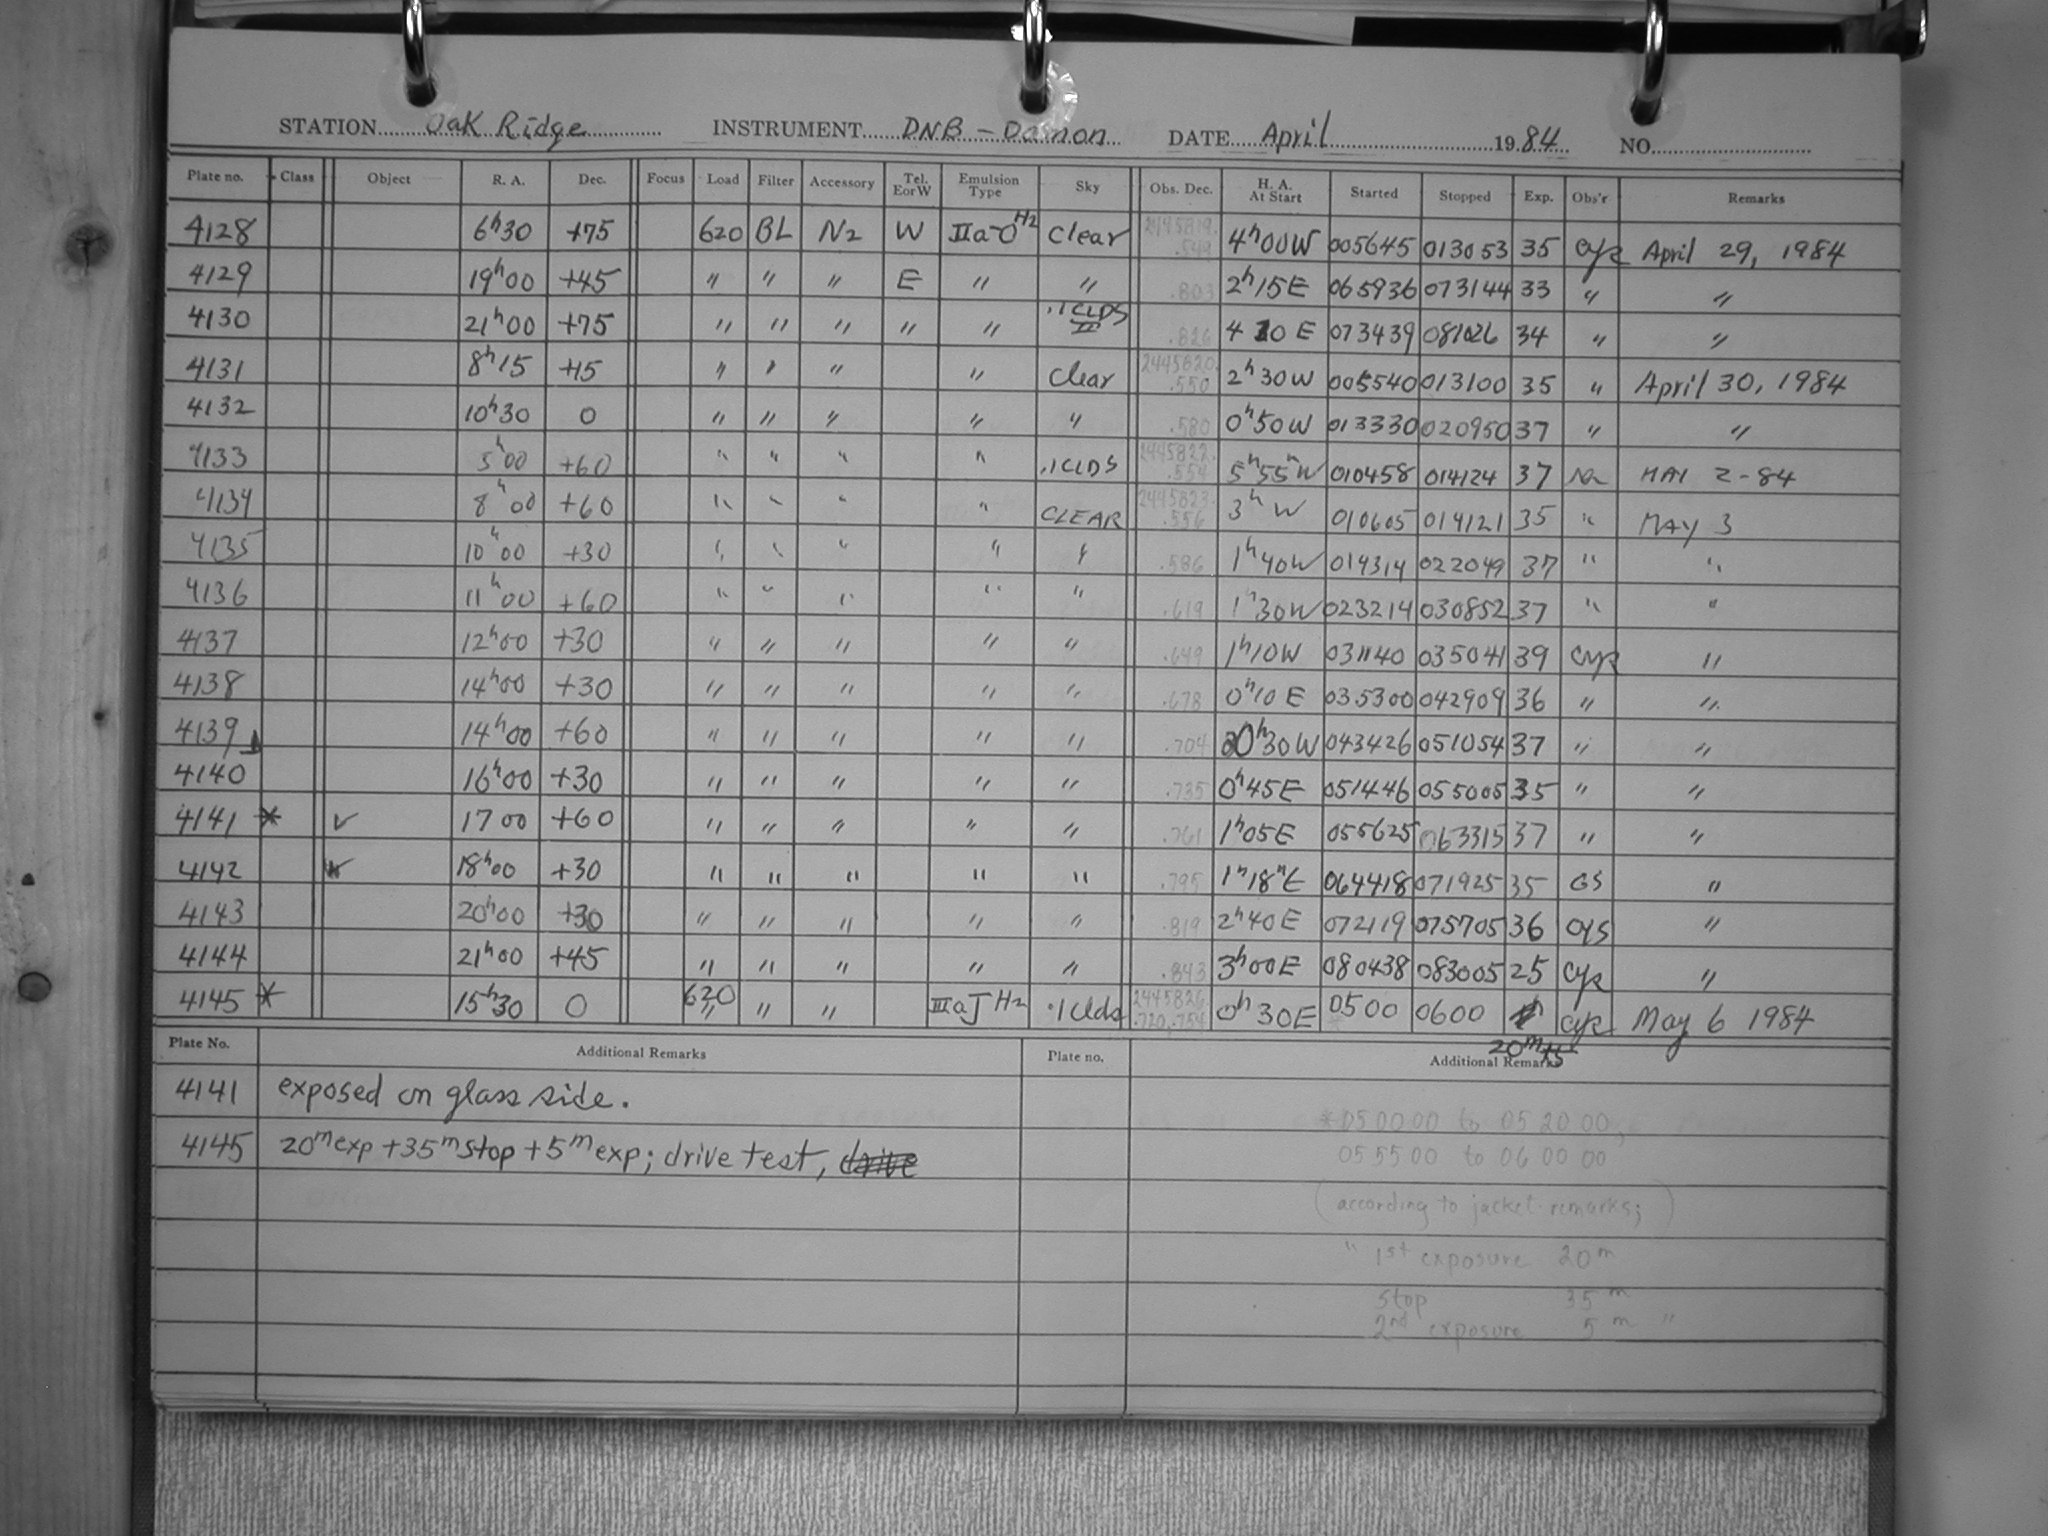 STATION Oak Ridge INSTRUMENT DNB - Damon DATE April 1984 NO.
Plate no. Class Object R. A. Dec. Focus Load Filter Accessory Tel. E or W Emulsion Type Sky Obs. Dec. H. A. At Start Started Stopped Exp. Obs'r Remarks
4128 6h30 +75 620 BL N2 W IIa-O H2 Clear 2445819. .549 4h00W 005645 013053 35 cys April 29, 1984
4129 19h00 +45 " " " E " " .803 2h15E 065936 073144 33 " "
4130 21h00 +75 " " " " " .1CLDS II .826 4 20 E 073439 081026 34 " "
4131 8h15 +15 " " " " Clear 2445820. .550 2h30W 005540 013100 35 " April 30, 1984
4132 10h30 0 " " " " " .580 0h50W 013330 020950 37 " "
4133 5h00 +60 " " " " .1CLDS 2445822. .554 5h55mW 010458 014124 37 MAY 2-84
4134 8h00 +60 " " " " CLEAR 2445823. .556 3h W 010605 014121 35 " MAY 3
4135 10h00 +30 " " " " " .586 1h40W 014314 022049 37 " "
4136 11h00 +60 " " " " " .619 1h30W 023214 030852 37 " "
4137 12h00 +30 " " " " " .649 1h10W 031140 035041 39 cys "
4138 14h00 +30 " " " " " .678 0h10E 035300 042909 36 " "
4139 14h00 +60 " " " " " .704 0h30W 043426 051054 37 " "
4140 16h00 +30 " " " " " .735 0h45E 051446 055005 35 " "
4141 * ✓ 17 00 +60 " " " " " .761 1h05E 055625 063315 37 " "
4142 * 18h00 +30 " " " " " .795 1h18mE 064418 071925 35 GS "
4143 20h00 +30 " " " " " .819 2h40E 072119 075705 36 cys "
4144 21h00 +45 " " " " " .843 3h00E 080438 083005 25 cys "
4145 * 15h30 0 620 " " " IIIaJ H2 .1Clds 2445826. .720,.754 0h30E 0500 0600 cys May 6 1984
20m+5
Plate No. Additional Remarks Plate no. Additional Remarks
4141 exposed on glass side.
4145 20m exp + 35m stop + 5m exp; drive test, drive
*050000 to 052000,
055500 to 060000
(according to jacket remarks;)
" 1st exposure 20m
stop 35m
2nd exposure 5m "